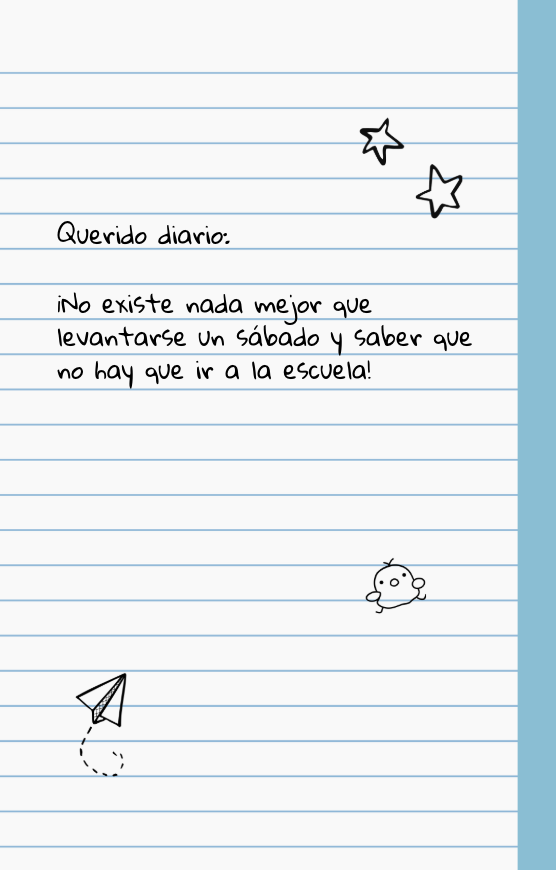 Querido diario:
¡No existe nada mejor que
levantarse un sábado y saber que
no hay que ir a la escuela!